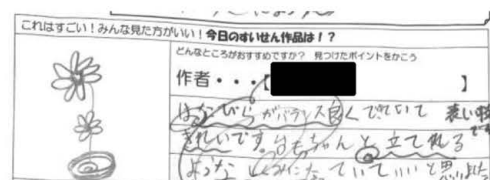 これはすごい！みんな見た方がいい！今日のすいせん作品は！？
どんなところがおすすめですか？ 見つけたポイントをかこう
作者・・・【 】
はなびらがバランス良くできていて
きれいです。 ちゃんと立てれる
ような ていていいと思いました